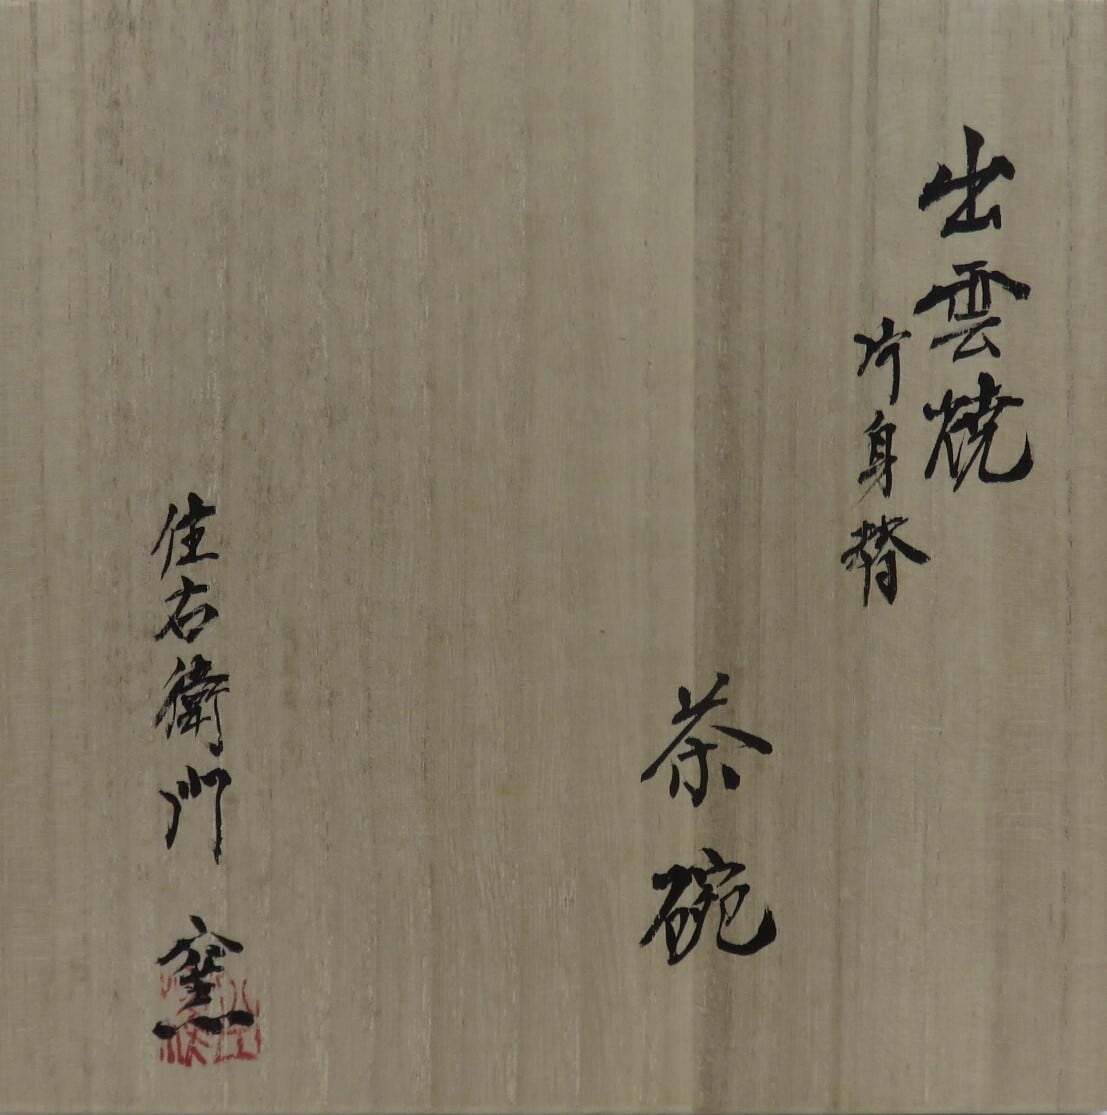 出雲焼
片身替
茶碗
佳右衛門窯